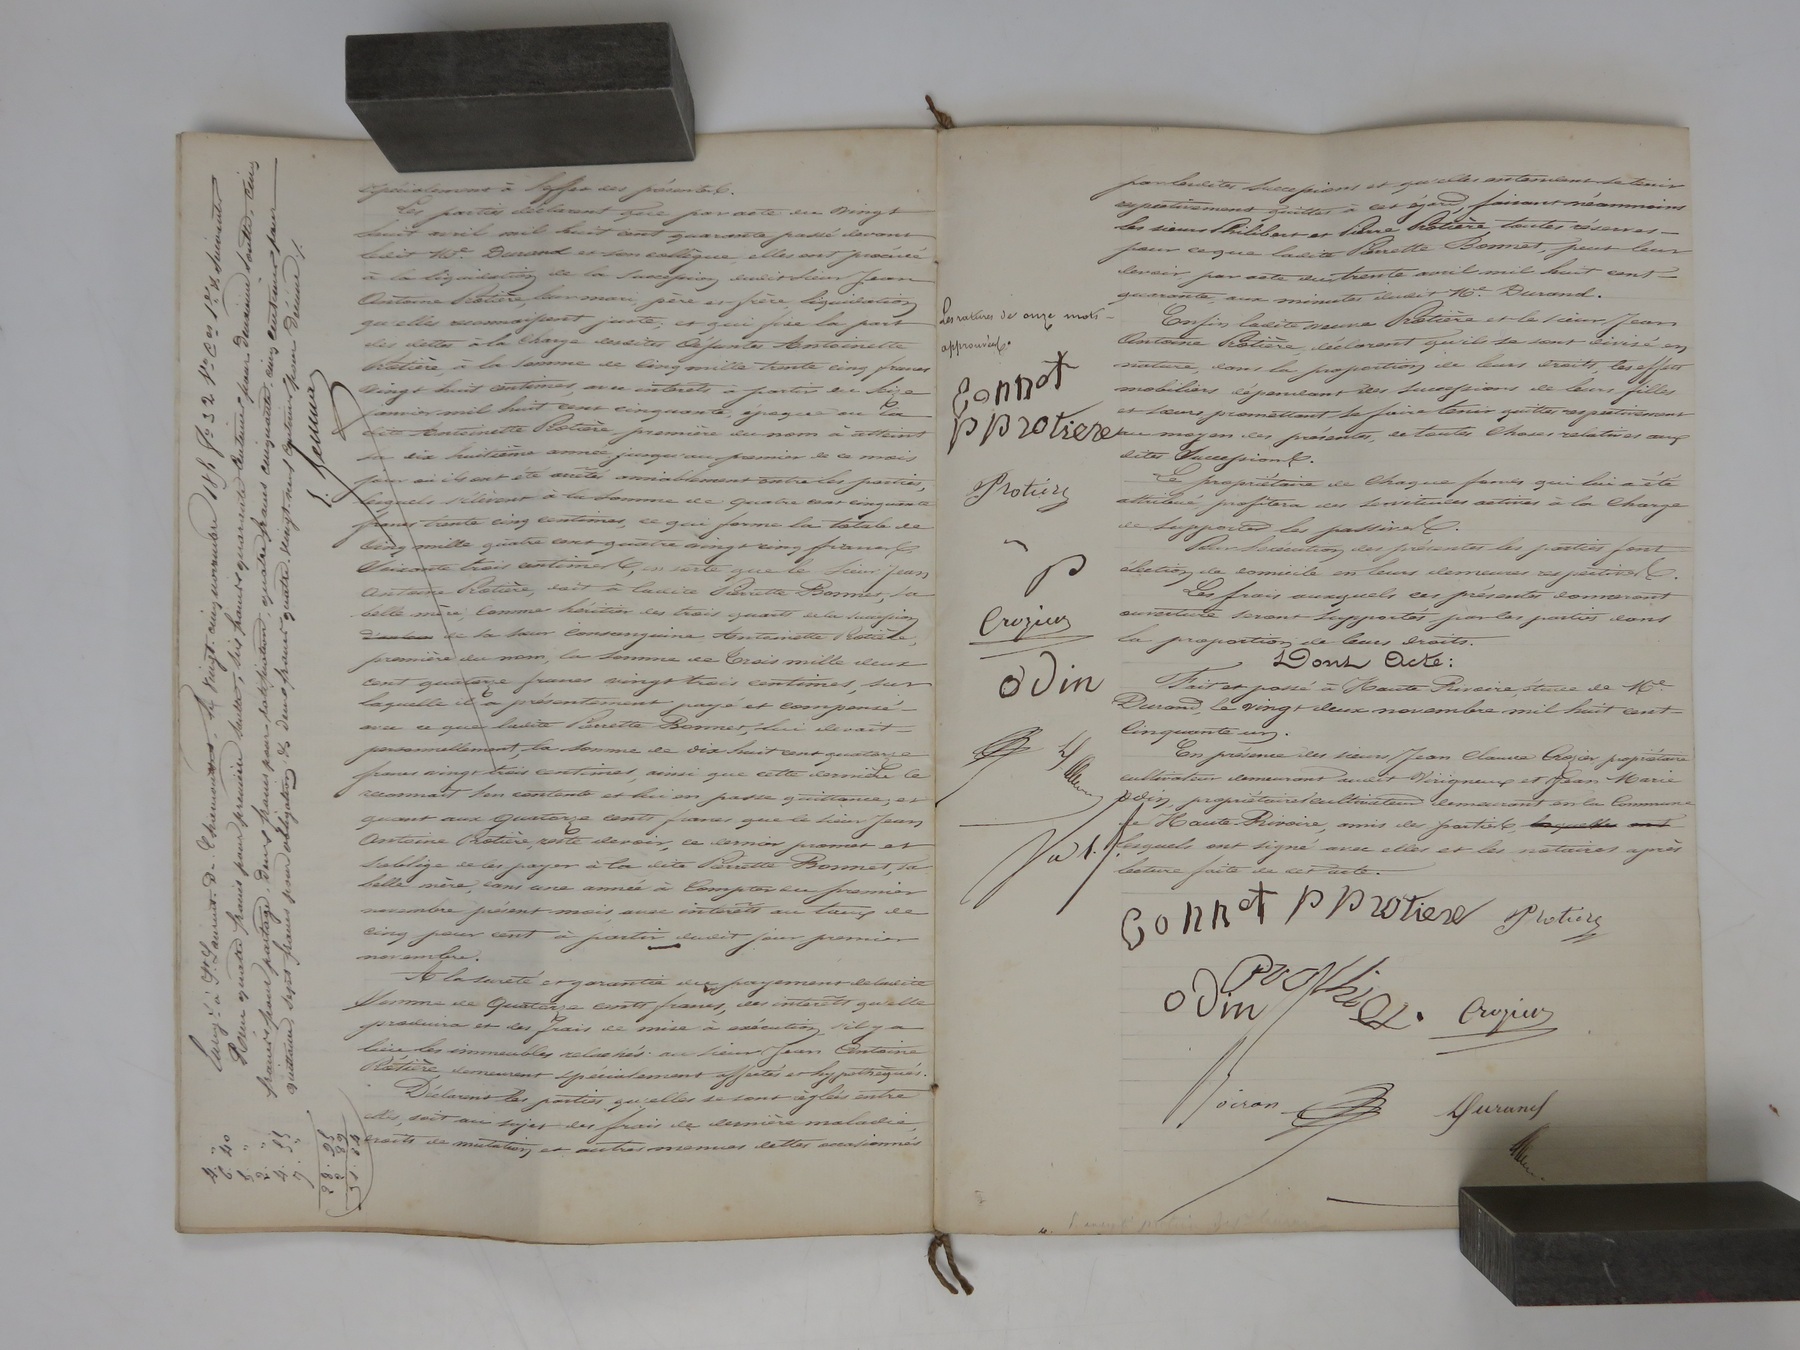 spécialement à l'effet des présentes.
Les parties déclarent que par acte du vingt
huit avril mil huit cent quarante passé devant
ledit Me. Durand et son collègue, elles ont procédé
à la liquidation de la succession dudit sieur Jean
Antoine Protière, leur mari, père et frère, liquidation
qu'elles reconnaissent juste, et qui fixe la part
des dettes à la charge desdites défuntes Antoinette
Protière, à la somme de cinq mille trente cinq francs
vingt huit centimes, avec intérêts à partir du seize
janvier mil huit cent cinquante, époque où la
dite Antoinette Protière première du nom a atteint
sa dix huitième année, jusqu'au premier de ce mois
jour où ils ont été arrêtés amiablement entre les parties,
lesquels s'élèvent à la somme de quatre cent cinquante
francs trente cinq centimes, ce qui forme la totale de
cinq mille quatre cent quatre vingt cinq francs
soixante trois centimes, en sorte que le sieur Jean
Antoine Protière, doit à ladite Pierrette Bonnet, sa
belle mère, comme héritier des trois quarts de la succession
de sa sœur consanguine Antoinette Protière,
première du nom, la somme de trois mille deux
cent quatorze francs vingt trois centimes, sur
laquelle il a présentement payé et compensé
avec ce que ladite Pierrette Bonnet, lui devait
personnellement, la somme de dix huit cent quatorze
francs vingt trois centimes, ainsi que cette dernière le
reconnait s'en contente et lui en passe quittance, et
quant aux quatorze cents francs que le sieur Jean
Antoine Protière, reste devoir, ce dernier promet et
s'oblige de les payer à la dite Pierrette Bonnet, sa
belle mère, dans une année à compter du premier
novembre présent mois avec intérêts au taux de
cinq pour cent à partir dudit jour premier
novembre.
A la sureté et garantie du payement de ladite
somme de quatorze cents francs, des intérêts qu'elle
produira et des frais de mise à exécution s'il y a
lieu les immeubles relachés au sieur Jean Antoine
Protière demeurent spécialement affectés et hypothéqués.
Déclarent les parties qu'elles se sont réglées entre
elles, soit au sujet des frais de dernière maladie,
droits de mutation et autres menues dettes occasionnés
Enreg. à St. Laurent de Chamousset, le vingt cinq novembre 1851 fo. 32
Reçu quatre francs pour premier
francs pour partage, deux francs pour
quittance, sept francs pour obligation, deux francs quatre vingt neuf centimes pour décime
par lesdites successions et qu'elles entendent se tenir
respectivement quittes à cet égard, faisant néanmoins
les sieurs Philibert et Pierre Protière, toutes réserves
pour ce que ladite Pierrette Bonnet, peut leur
devoir par acte du trente avril mil huit cent
quarante, aux minutes dudit Me. Durand.
Enfin ladite veuve Protière et le sieur Jean
Antoine Protière, déclarent qu'ils se sont divisé en
nature, dans la proportion de leurs droits, les effets
mobiliers dépendant des successions de leurs filles
et sœurs promettant se faire tenir quittes respectivement
au moyen des présentes, de toutes choses relatives aux
dites successions.
Le propriétaire de chaque fonds qui lui a été
attribué profitera des servitudes actives à la charge
de supporter les passives.
Pour l'exécution des présentes les parties font
élection de domicile en leurs demeures respectives.
Les frais auxquels ces présentes donneront
ouverture seront supportés par les parties dans
la proportion de leurs droits.
Dont Acte:
Fait et passé à Haute Rivoire, étude de Me.
Durand, le vingt deux novembre mil huit cent
cinquante un.
En présence des sieurs Jean Claude Crozier propriétaire
cultivateur demeurant audit Virigneux et Jean Marie
Odin, propriétaire cultivateur demeurant en la commune
de Haute Rivoire, amis des parties
lesquels ont signé avec elles et les notaires après
lecture faite de cet acte.
Les ratures de onze mots
approuvées.
bonnet
p protiere
Protière
p
Crozier
odin
bonnet p protiere Protière
odin protiere. Crozier
Voiron Durand